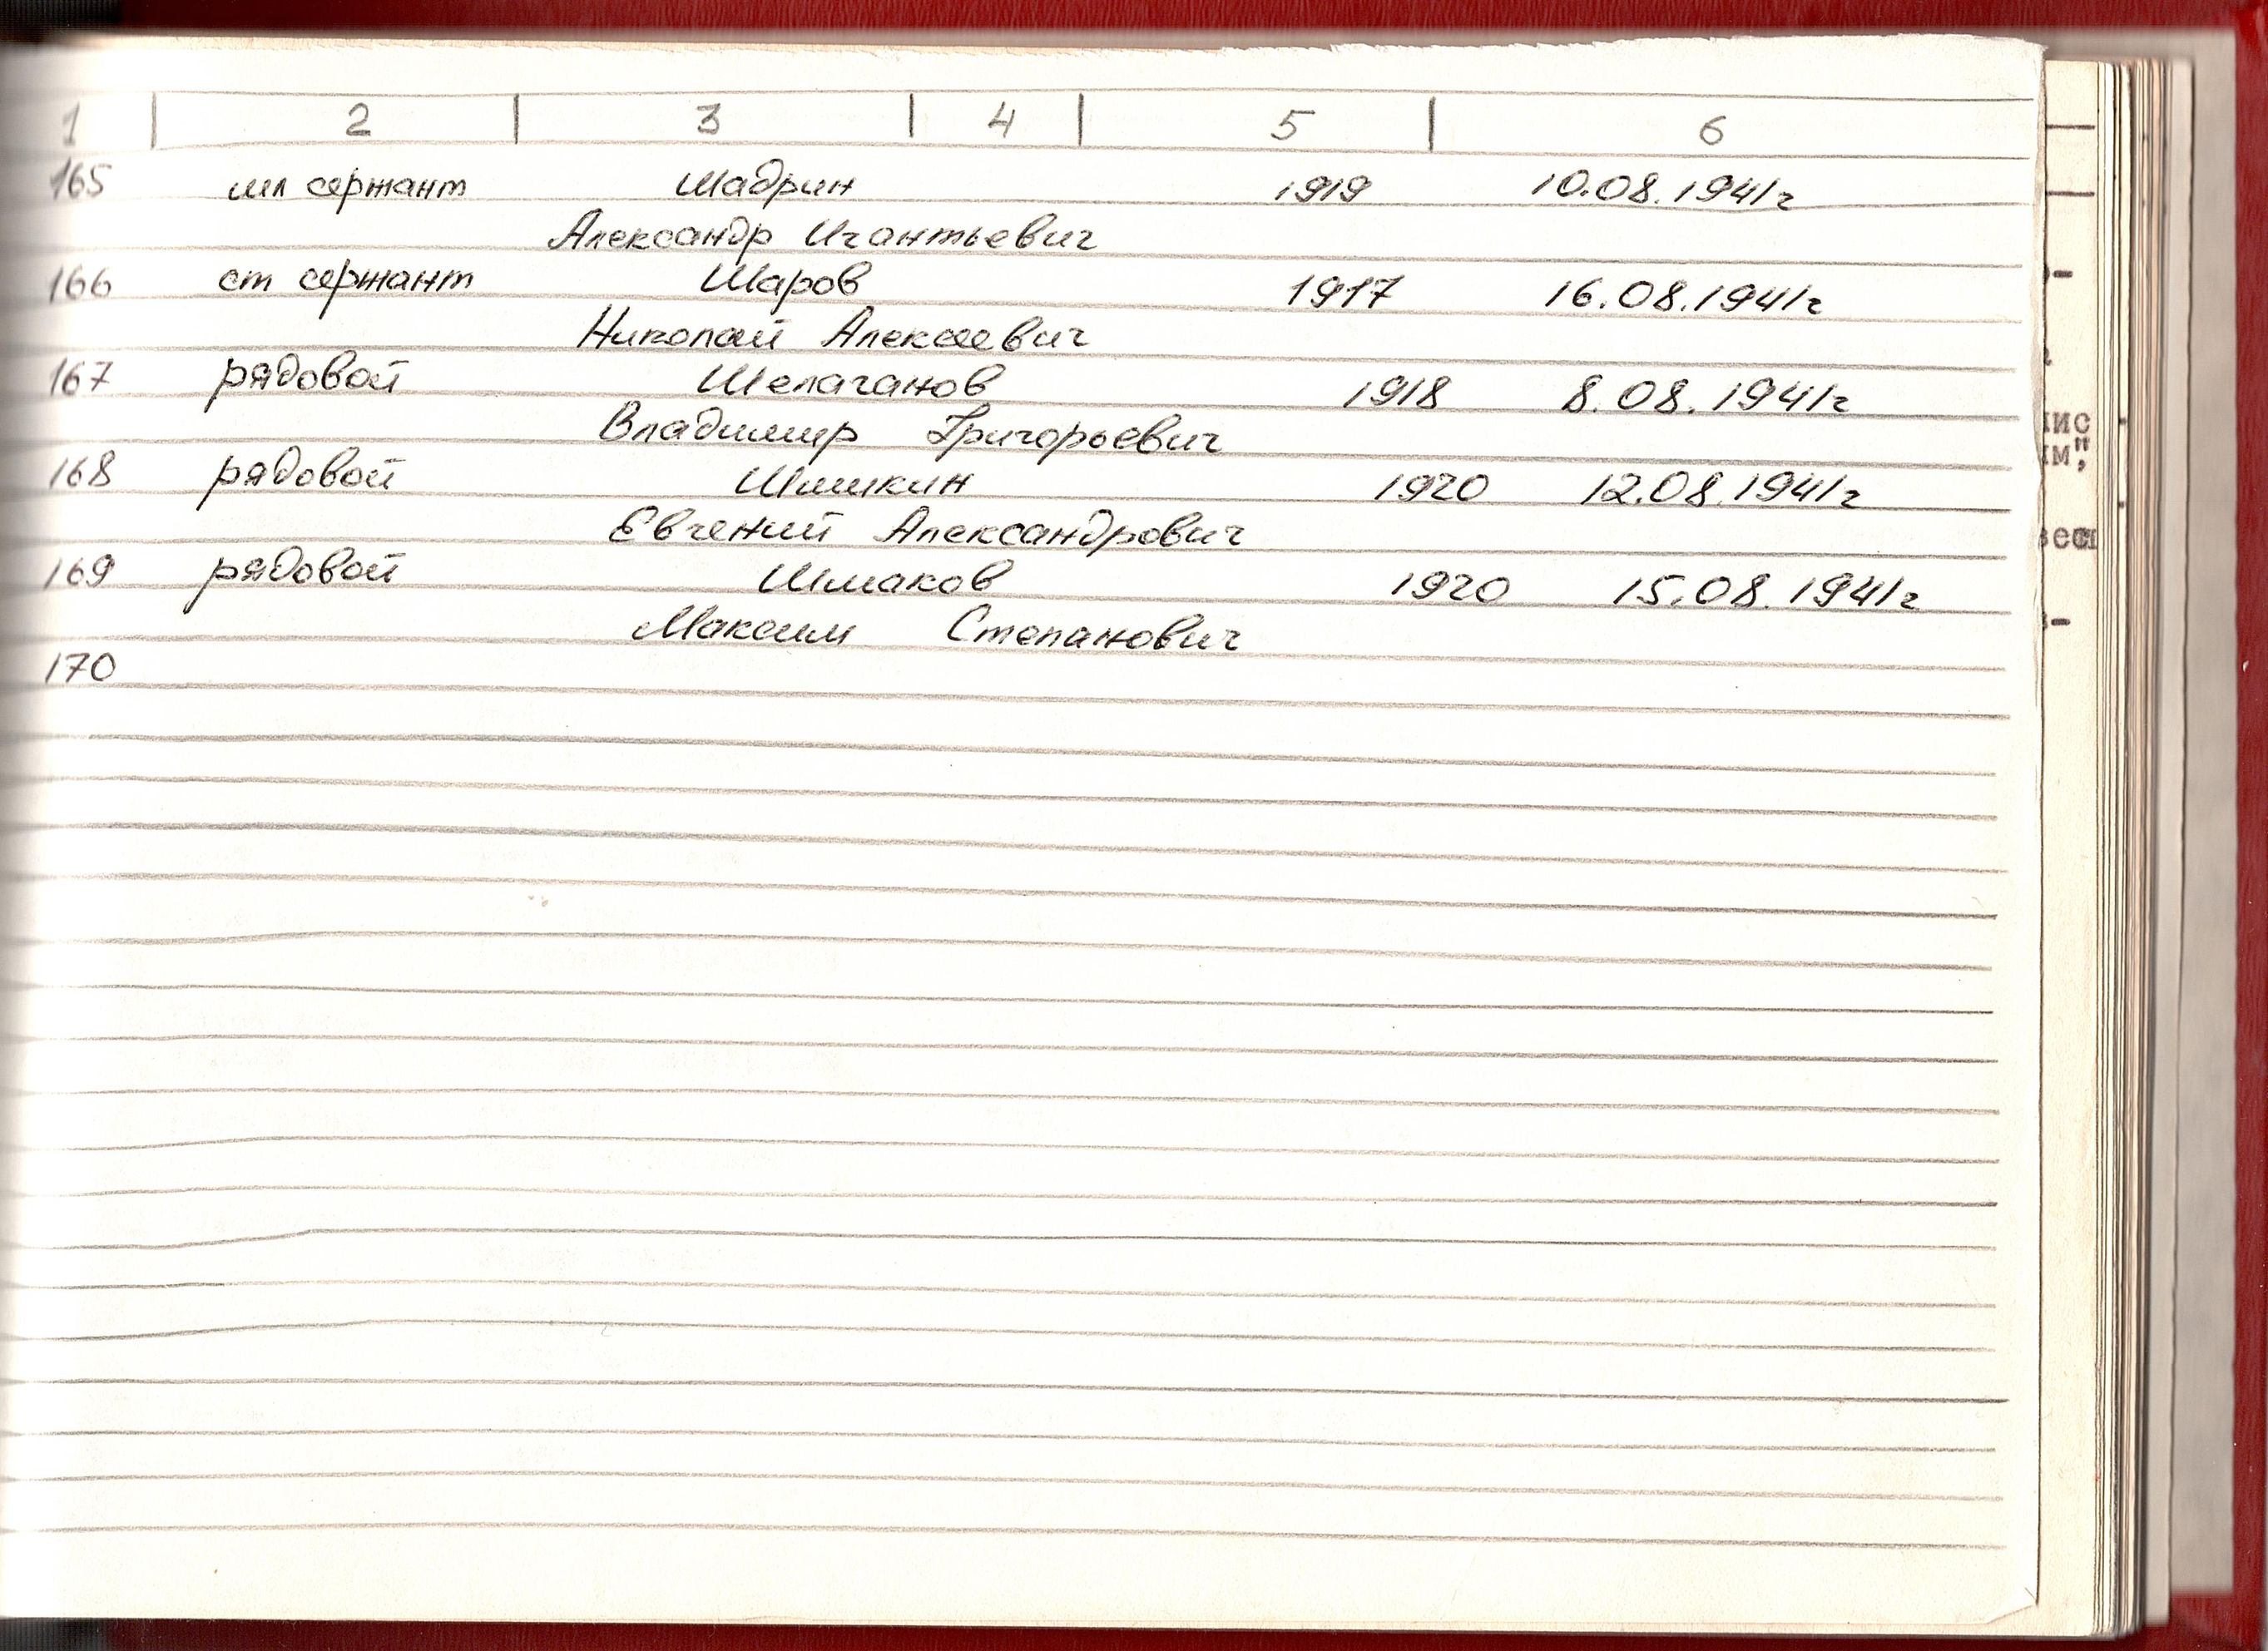 1 2 3 4 5 6
165 мл сержант Шадрин 1919 10.08.1941г
Александр Игантьевич
166 ст сержант Шаров 1917 16.08.1941г
Николай Алексеевич
167 рядовой Шелаганов 1918 8.08.1941г
Владимир Григорьевич
168 рядовой Шишкин 1920 12.08.1941г
Евгений Александрович
169 рядовой Шмаков 1920 15.08.1941г
Максим Степанович
170